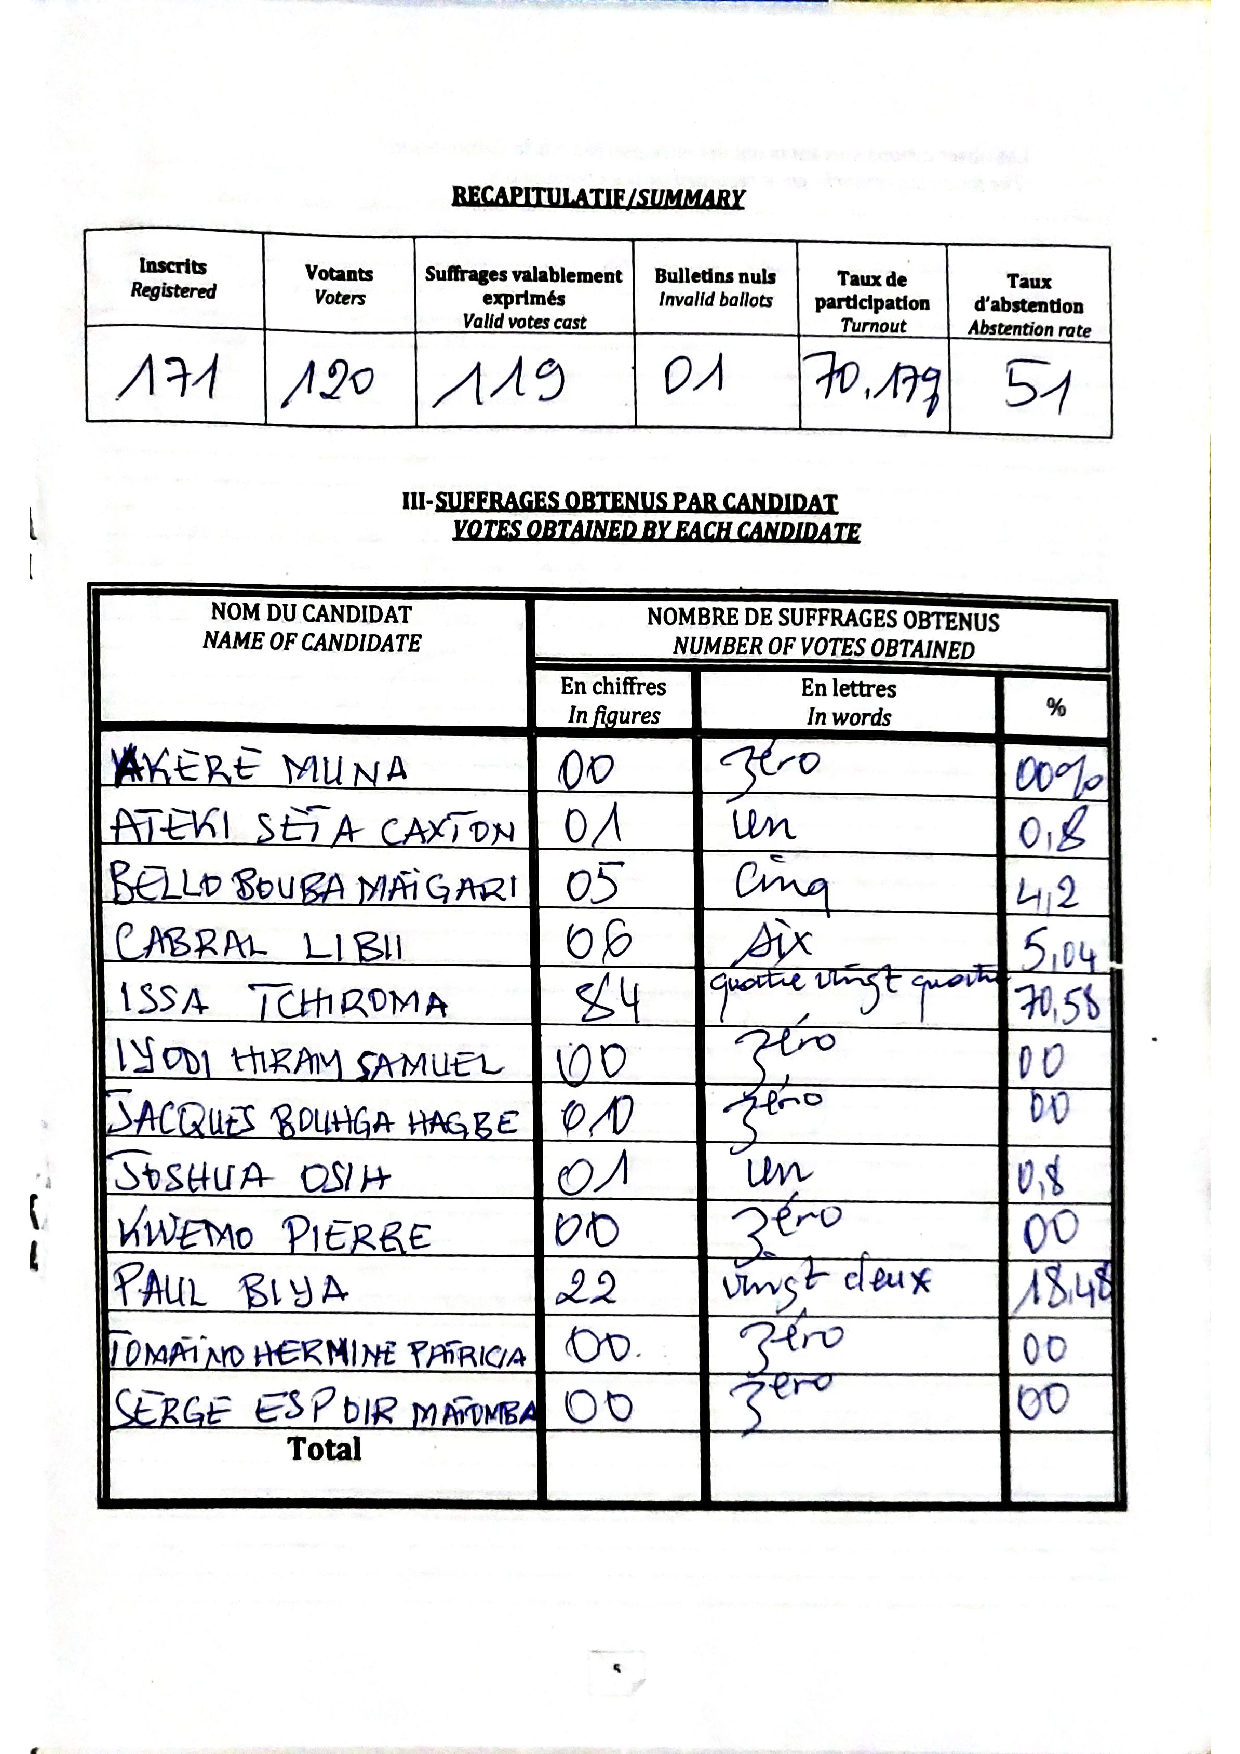 RECAPITULATIF/SUMMARY
Inscrits Registered | Votants Voters | Suffrages valablement exprimés Valid votes cast | Bulletins nuls Invalid ballots | Taux de participation Turnout | Taux d'abstention Abstention rate
171 | 120 | 119 | 01 | 70,179 | 51
III-SUFFRAGES OBTENUS PAR CANDIDAT
VOTES OBTAINED BY EACH CANDIDATE
NOM DU CANDIDAT NAME OF CANDIDATE | NOMBRE DE SUFFRAGES OBTENUS NUMBER OF VOTES OBTAINED
En chiffres In figures | En lettres In words | %
AKERE MUNA | 00 | zéro | 00%
ATEKI SETA CAXTON | 01 | un | 0,8
BELLO BOUBA MAIGARI | 05 | Cinq | 4,2
CABRAL LIBII | 06 | six | 5,04
ISSA TCHIROMA | 84 | quatre vingt quatre | 70,58
IYODI HIRAM SAMUEL | 00 | zéro | 00
JACQUES BOUHGA HAGBE | 00 | zéro | 00
JOSHUA OSIH | 01 | un | 0,8
KWEMO PIERRE | 00 | zéro | 00
PAUL BIYA | 22 | vingt deux | 18,48
TOMAINO HERMINE PATRICIA | 00. | zéro | 00
SERGE ESPOIR MATOMBA | 00 | zéro | 00
Total
5